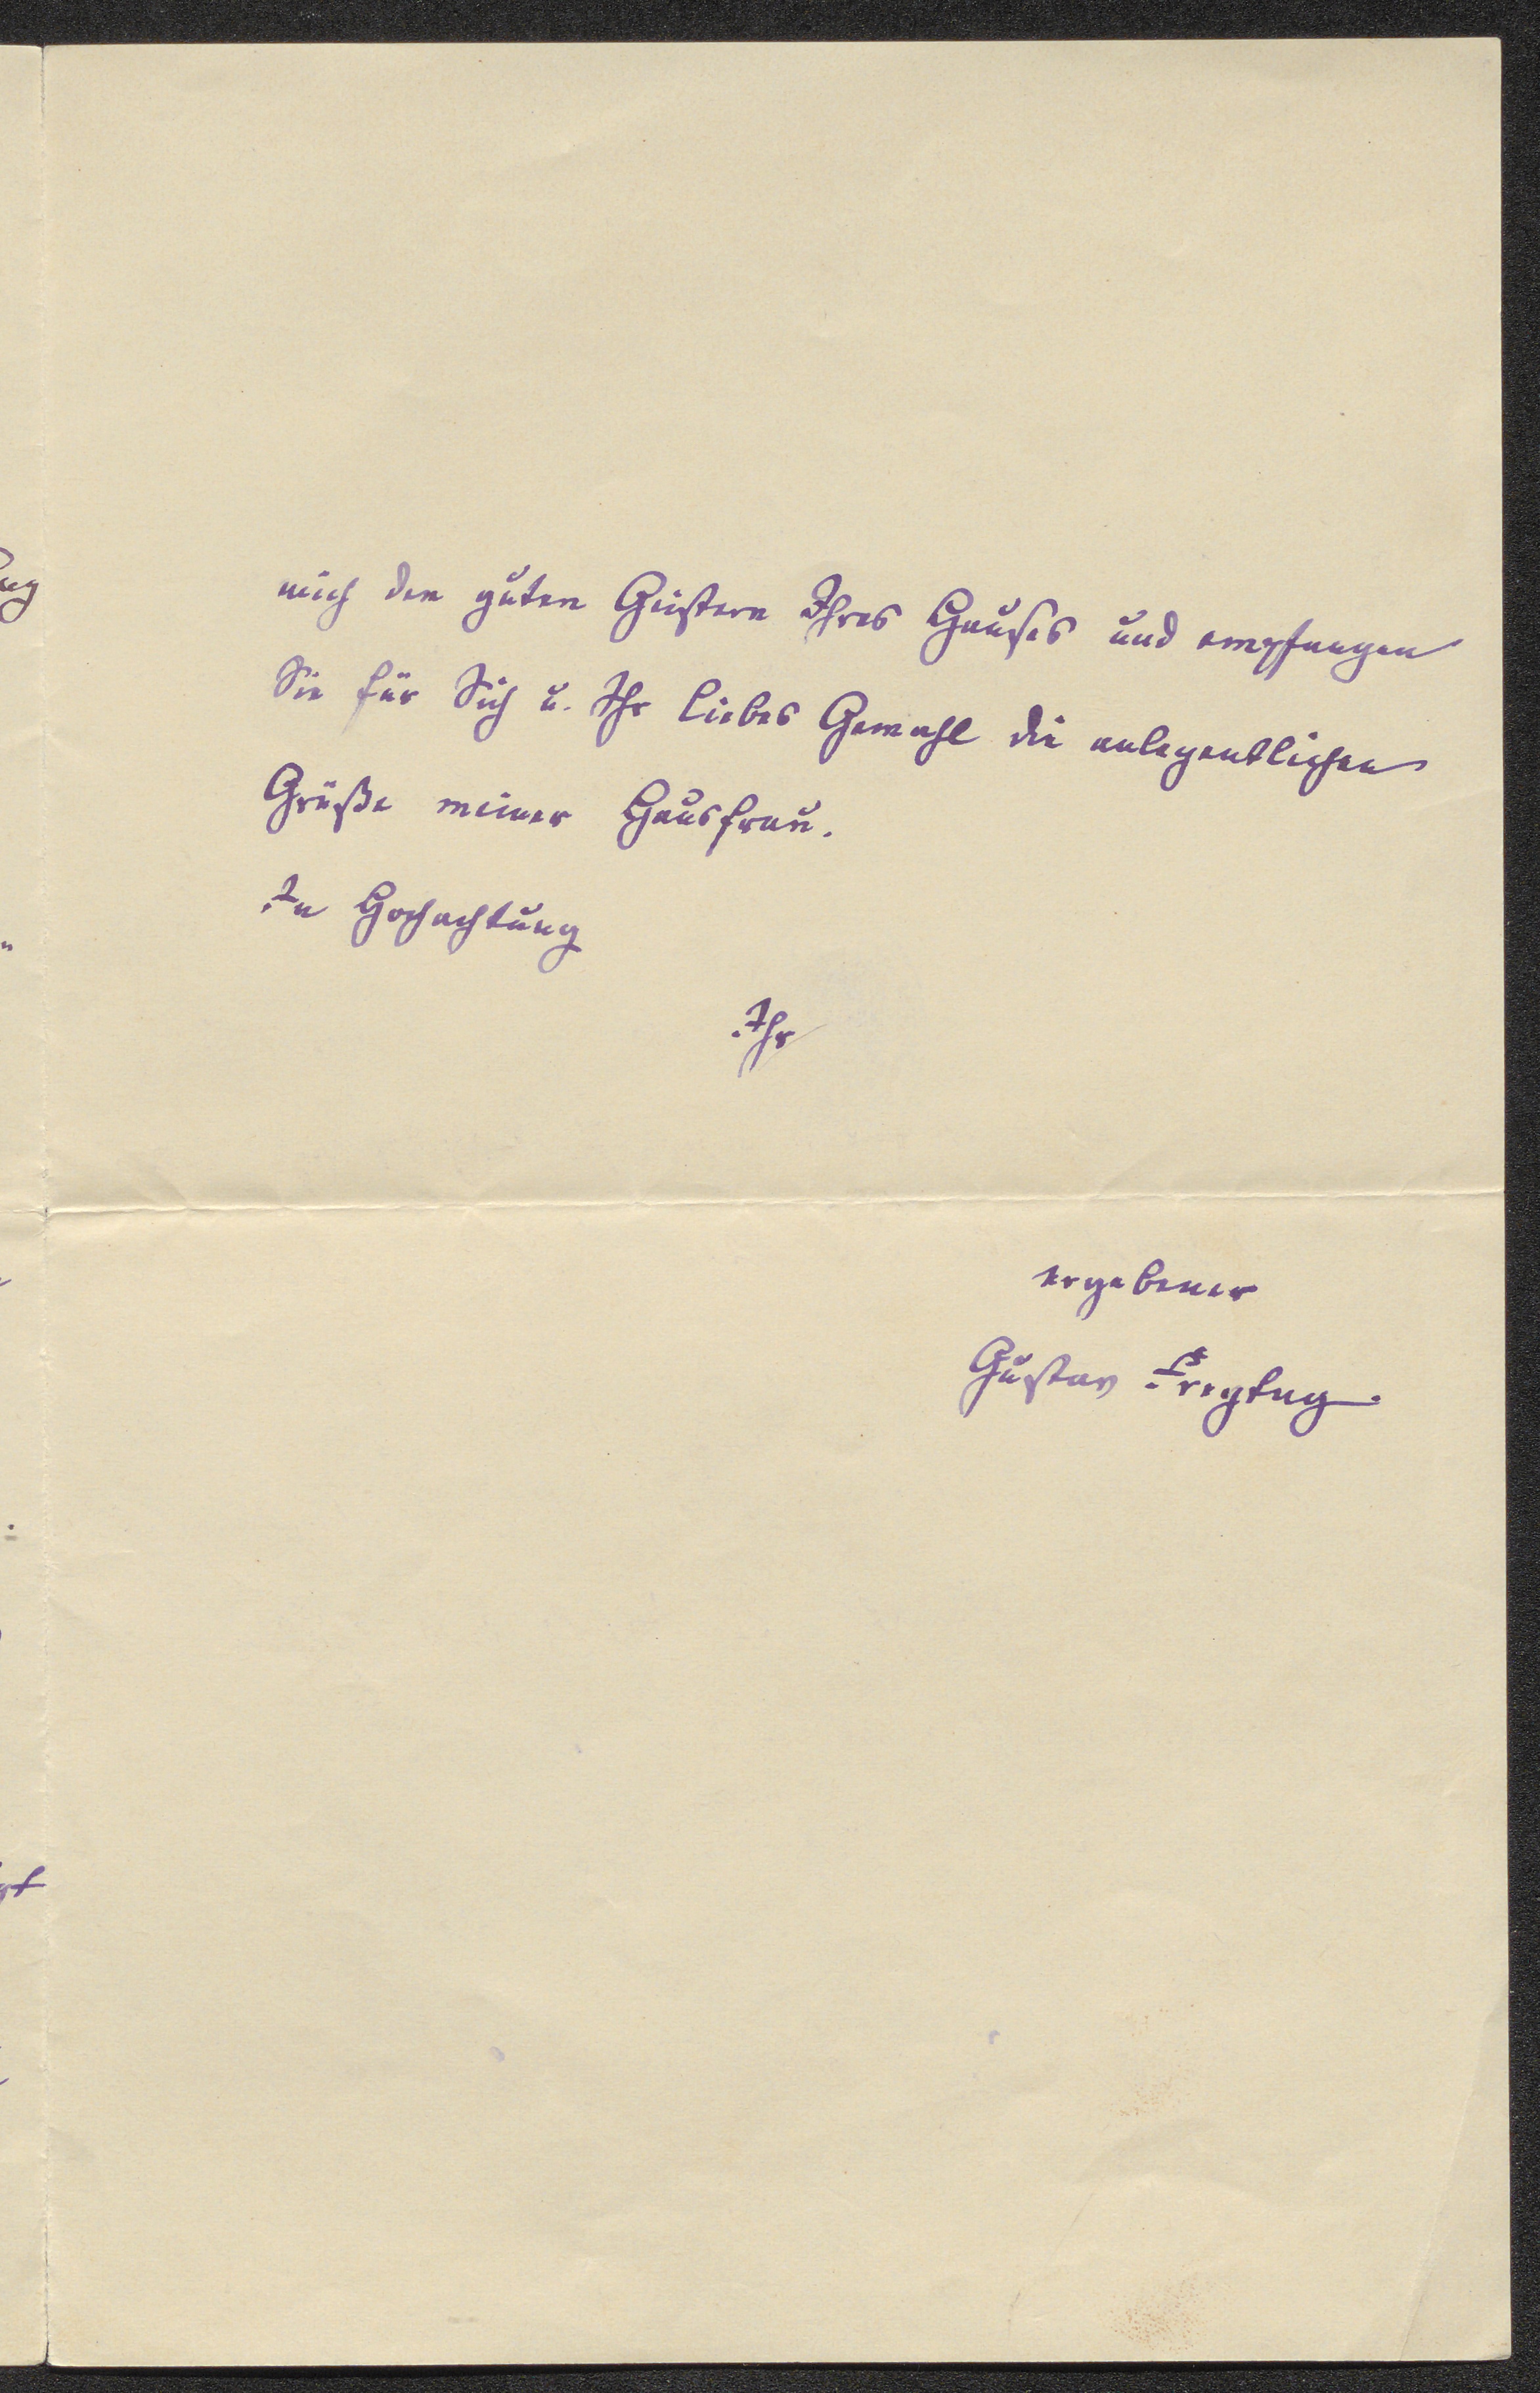 mich den guten Geistern Ihres Hauses und empfangen
Sie für Sich u. Ihr liebes Gemahl die angelegentlichen
Grüße meiner Hausfrau.
In Hochachtung
Ihr
ergebener
Gustav Freytag.